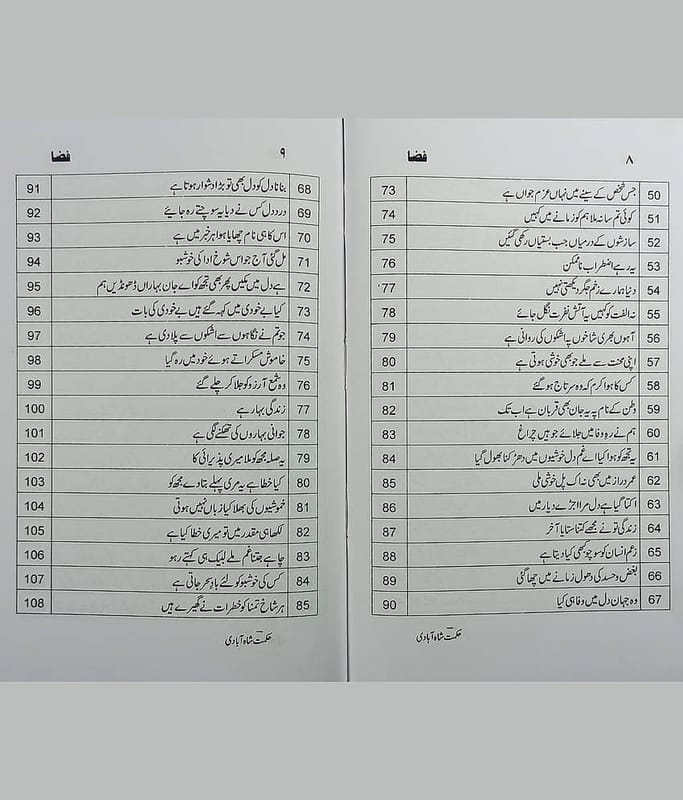 فضا ۸
50 جس شخص کے سینے میں نہاں عزم جواں ہے 73
51 کوئی تم سا نہ ملا ہم کو زمانے میں کہیں 74
52 سازشوں کے درمیاں جب بستیاں رکھی گئیں 75
53 یہ رہے اضطراب ناممکن 76
54 دنیا ہمارے زخم جگر دیکھتی نہیں 77
55 نہ الفت کو کہیں یہ آتش نفرت نگل جائے 78
56 آہوں بھری شاخوں پہ اشکوں کی روانی ہے 79
57 اپنی محنت سے ملے جو بھی خوشی ہوتی ہے 80
58 کس کا ہوا کرم کہ وہ سرتاج ہو گئے 81
59 وطن کے نام پہ یہ جان بھی قربان ہے اب تک 82
60 ہم نے رہِ وفا میں جلائے جو ہیں چراغ 83
61 یہ تجھ کو ہوا کیا اے غم دل خوشیوں میں دھڑکنا بھول گیا 84
62 عمر دراز میں بھی نہ اک پل خوشی ملی 85
63 اکتا گیا ہے دل مرا اجڑے دیار میں 86
64 زندگی تو نے مجھے کتنا ستایا آخر 87
65 زعم انسان کو سوچو بھی کیا دیتا ہے 88
66 بغض و حسد کی دھول زمانے میں چھا گئی 89
67 وہ جہان دل میں وفا ہی کیا 90
حکمت شاہ آبادی
فضا ۹
68 بنانا دل کو دل بھی تو بڑا دشوار ہوتا ہے 91
69 درد دل کس نے دیا یہ سوچتے رہ جائیے 92
70 اس کا ہی نام چھایا ہوا ہر خبر میں ہے 93
71 مل گئی آج جو اس شوخ ادا کی خوشبو 94
72 ہے دل میں مکیں پھر بھی تجھ کو اے جان بہاراں ڈھونڈیں ہم 95
73 کیا بے خودی میں کہہ گئے ہیں بے خودی کی بات 96
74 جو تم نے نگاہوں سے اشکوں سے پلا دی ہے 97
75 خاموش مسکراتے ہوئے خود میں رہ گیا 98
76 وہ شمع آرزو کو جلا کر چلے گئے 99
77 زندگی بہار ہے 100
78 جوانی بہاروں کی تھکنے لگی ہے 101
79 یہ صلہ مجھ کو ملا میری پذیرائی کا 102
80 کیا خطا ہے یہ مری پہلے بتا دے مجھ کو 103
81 خموشیوں کی بھلا کیا زباں نہیں ہوتی 104
82 لکھا ہی مقدر میں تو میری خطا کیا ہے 105
83 چاہے جتنا غم ملے لبیک ہی کہتے رہو 106
84 کس کی خوشبو کو لئے بادِ سحر جاتی ہے 107
85 ہر شاخ تمنا کو خطرات نے گھیرے ہیں 108
حکمت شاہ آبادی